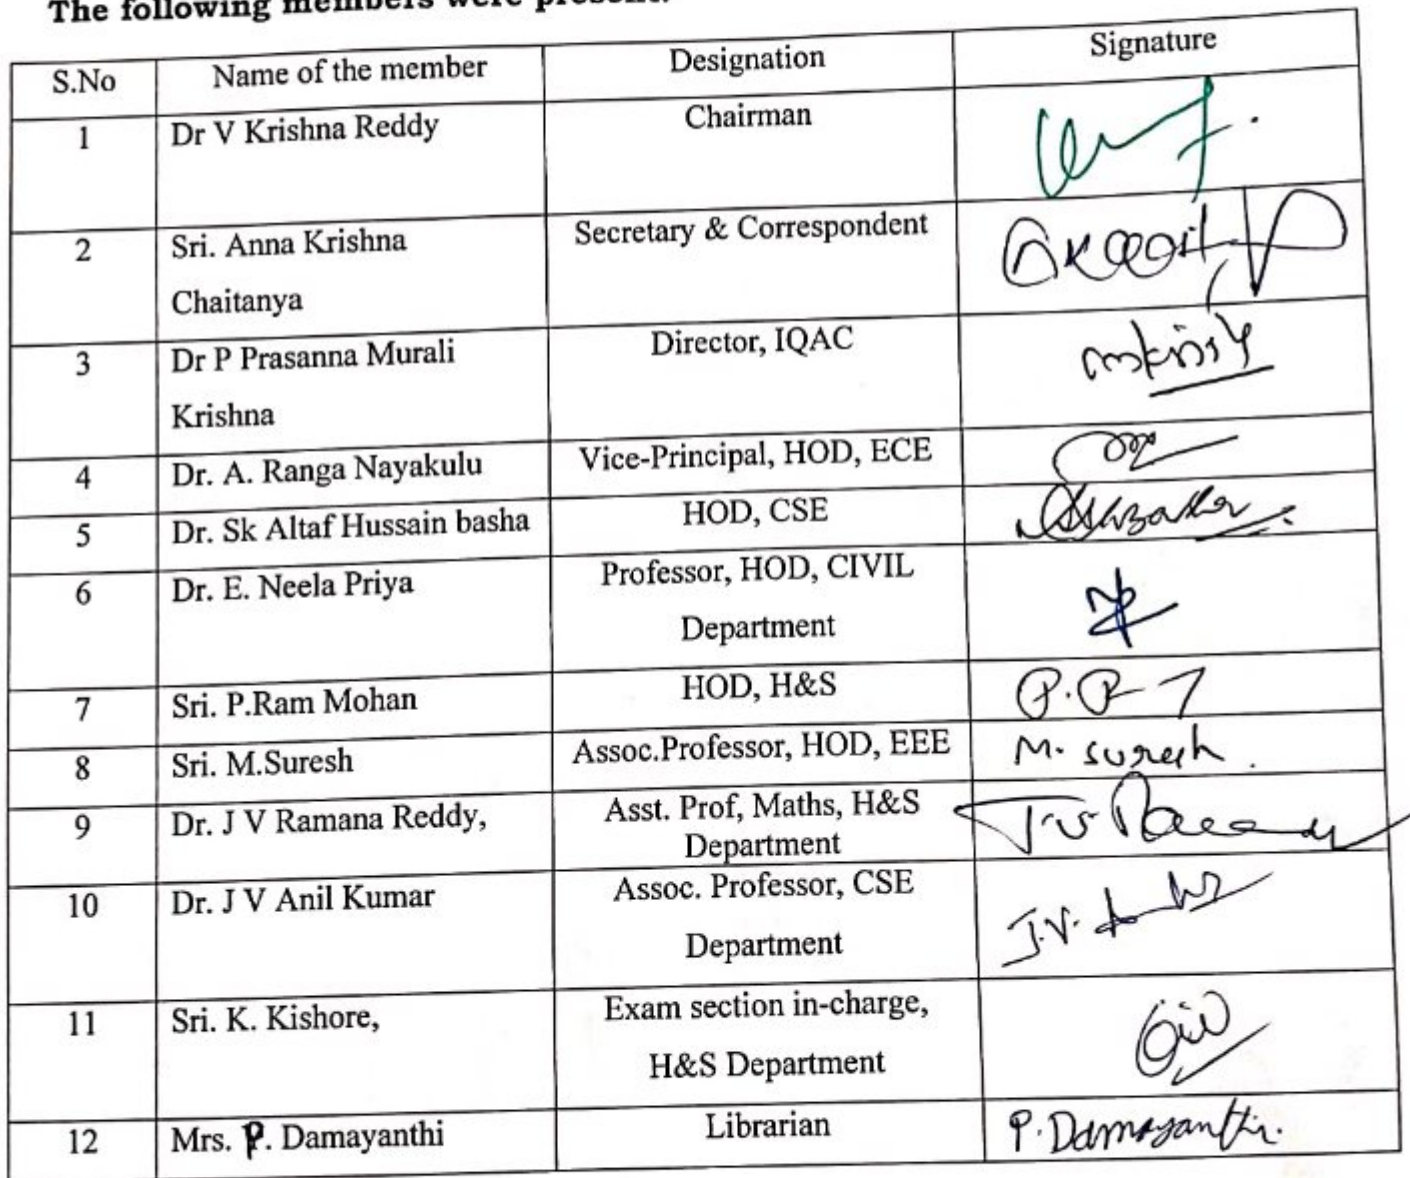 The following members were present.
S.No Name of the member Designation Signature
1 Dr V Krishna Reddy Chairman
2 Sri. Anna Krishna Secretary & Correspondent
Chaitanya
3 Dr P Prasanna Murali Director, IQAC
Krishna
4 Dr. A. Ranga Nayakulu Vice-Principal, HOD, ECE
5 Dr. Sk Altaf Hussain basha HOD, CSE
6 Dr. E. Neela Priya Professor, HOD, CIVIL
Department
7 Sri. P.Ram Mohan HOD, H&S
8 Sri. M.Suresh Assoc.Professor, HOD, EEE M. Suresh.
9 Dr. J V Ramana Reddy, Asst. Prof, Maths, H&S
Department
10 Dr. J V Anil Kumar Assoc. Professor, CSE J.V.
Department
11 Sri. K. Kishore, Exam section in-charge,
H&S Department
12 Mrs. P. Damayanthi Librarian P. Damayanthi.